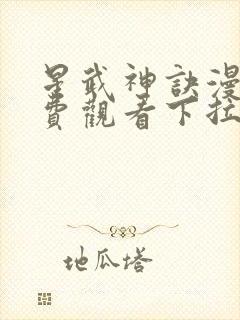 星武神訣漫
費觀看下拉
地瓜塔